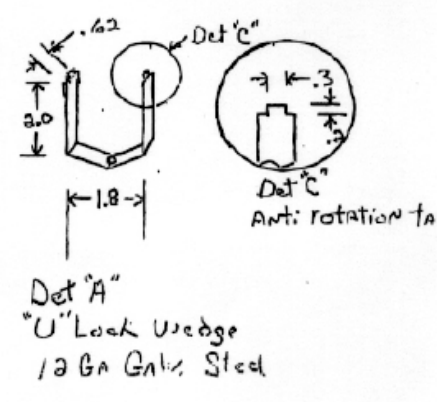 .62
Det "C"
.3
2.0
.2
1.8
Det "C"
Anti rotation ta
Det "A"
"U" Lock Wedge
12 Ga Galv. Steel